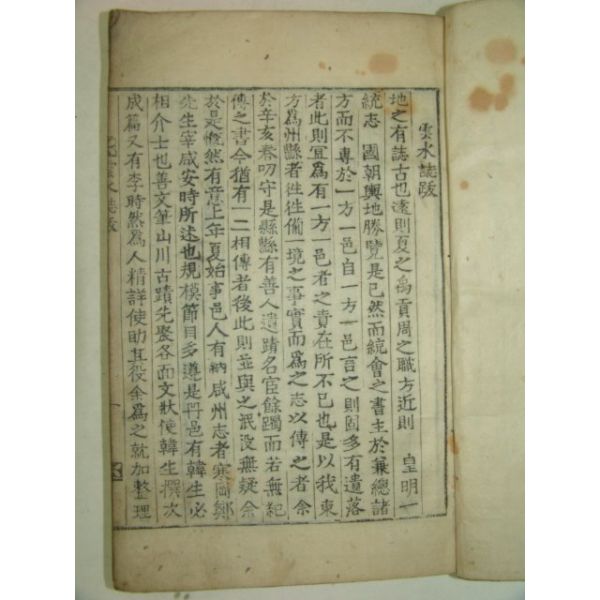 雲水誌跋
地之有誌古也遠則夏之禹貢周之職方近則 皇明一
統志 國朝輿地勝覽是已然而統會之書主於兼總諸
方而不專於一方一邑自一方一邑言之則固多有遺落
者此則宜爲有一方一邑者之責在所不已也是以我東
方爲州縣者徃徃備一境之事實而爲之志以傳之者余
於辛亥春叨守是縣縣有善人遺蹟名宦餘躅而若無紀
傳之書今猶有一二相傳者後此則並與之泯沒無疑余
於是慨然有意上年夏始事邑人有納咸州志者寒岡鄭
先生宰咸安時所述也規模節目多遵是冊邑有韓生必
相介士也善文筆山川古蹟先聚各面文狀使韓生撰次
成篇又有李時然爲人精詳使助其役余爲之就加整理
雲水誌跋